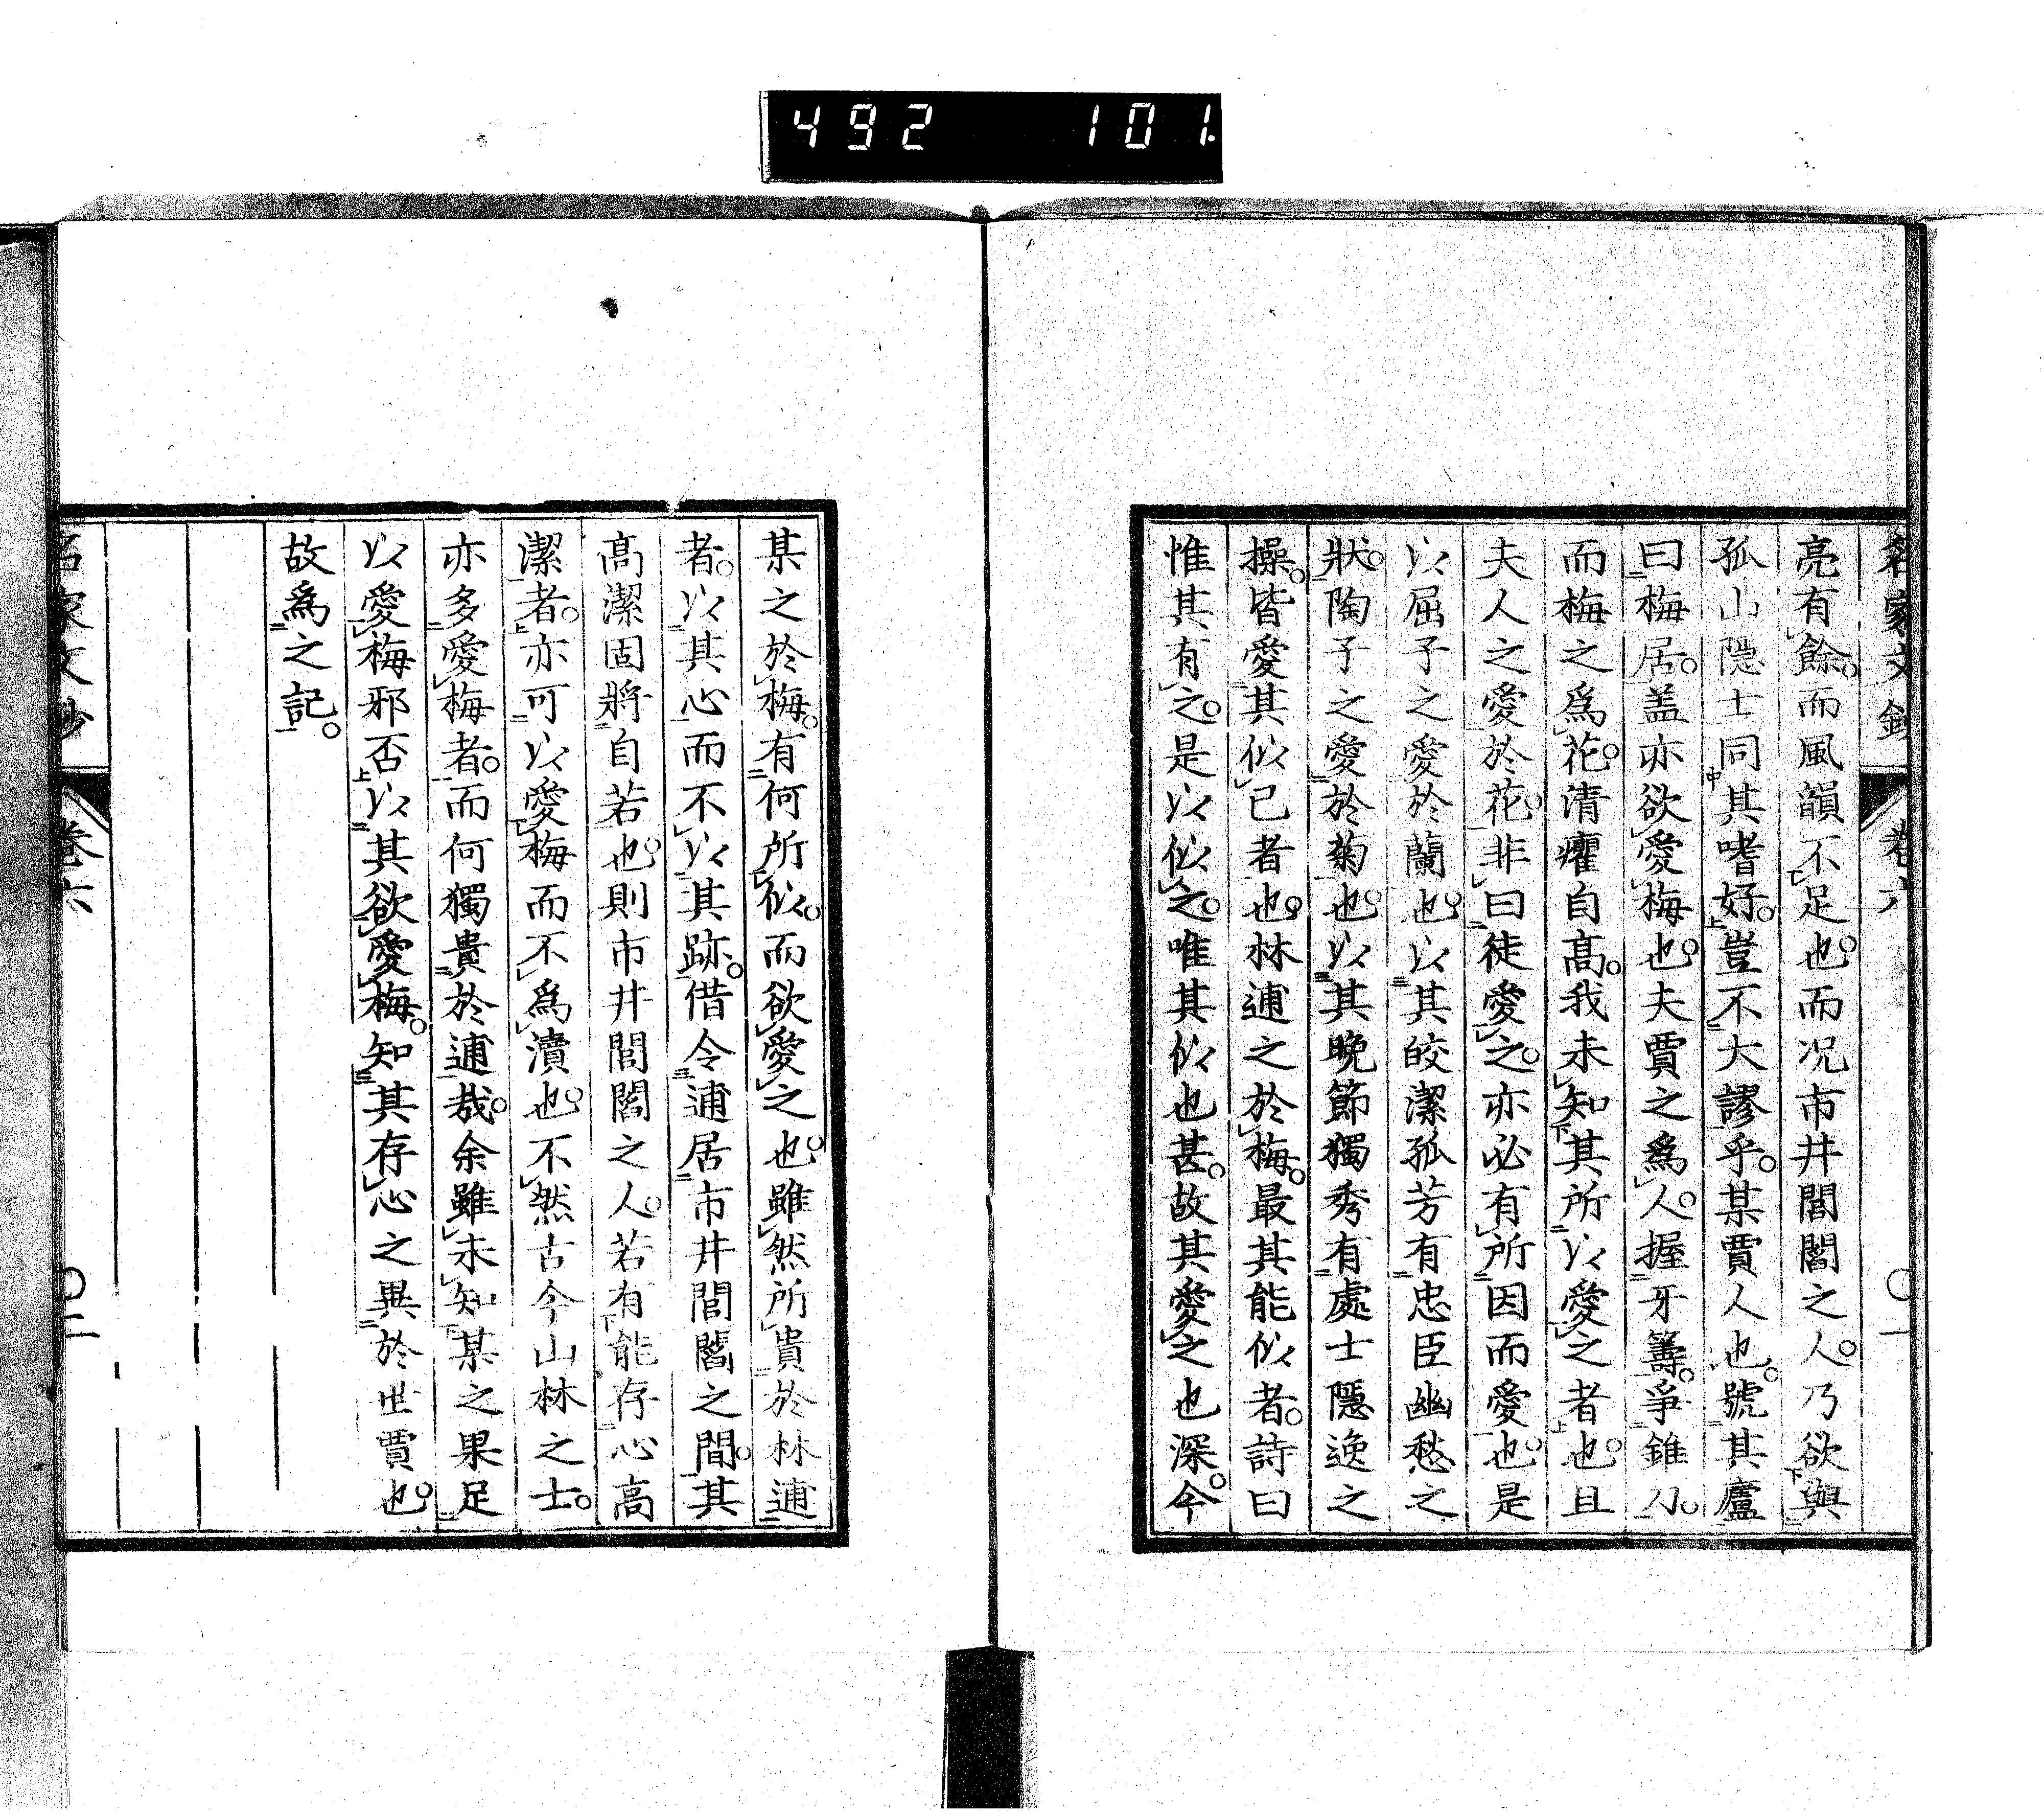 492 101
名家文鈔 卷六 〇一
亮有餘而風韻不足也而况市井閭閻之人乃欲與
孤山隠士同其嗜好豈不大謬乎某賈人也號其廬
曰梅居盖亦欲愛梅也夫賈之爲人握牙籌爭錐刀
而梅之爲花清癯自高我未知其所以愛之者也且
夫人之愛於花非曰徒愛之亦必有所因而愛也是
以屈子之愛於蘭也以其皎潔孤芳有忠臣幽愁之
狀陶子之愛於菊也以其晩節獨秀有處士隱逸之
操皆愛其似己者也林逋之於梅最其能似者詩曰
惟其有之是以似之唯其似也甚故其愛之也深今
某之於梅有何所似而欲愛之也雖然所貴於林逋
者以其心而不以其跡借令逋居市井閭閻之間其
高潔固將自若也則市井閭閻之人若有能存心高
潔者亦可以愛梅而不爲瀆也不然古今山林之士
亦多愛梅者而何獨貴於逋哉余雖未知某之果足
以愛梅邪否以其欲愛梅知其存心之異於世賈也
故爲之記
名家文鈔 卷六 〇二